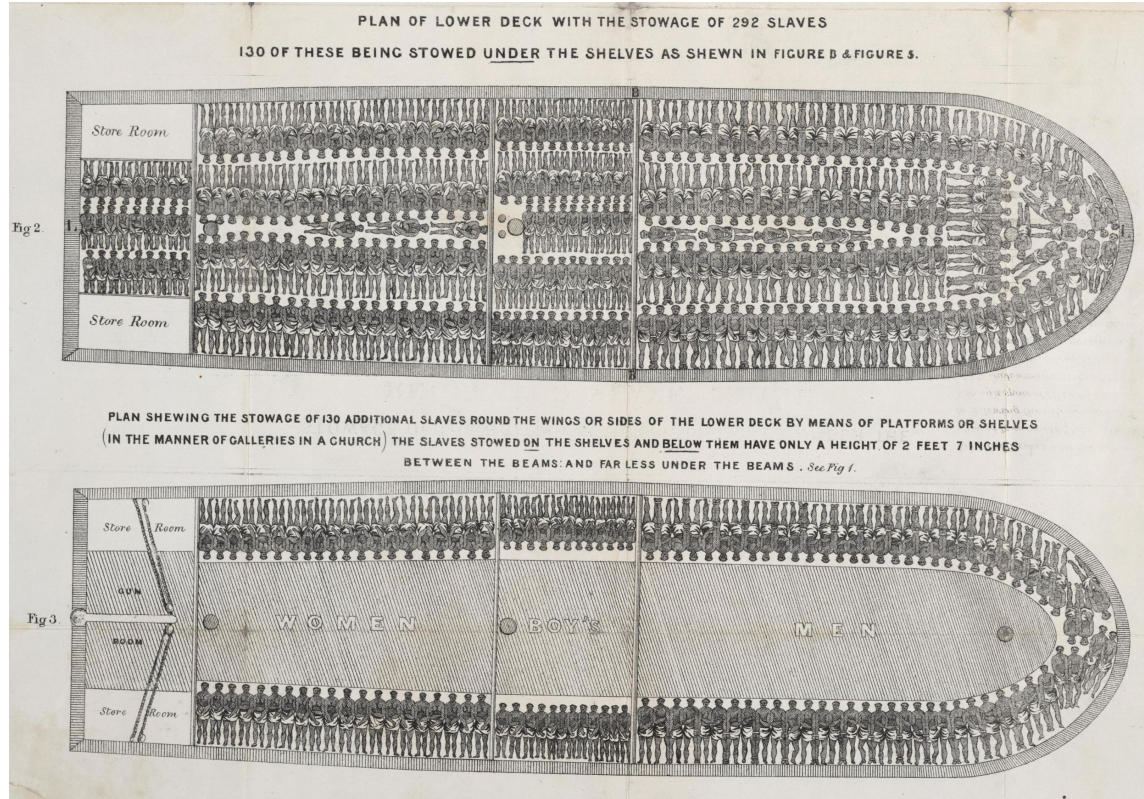 PLAN OF LOWER DECK WITH THE STOWAGE OF 292 SLAVES
130 OF THESE BEING STOWED UNDER THE SHELVES AS SHEWN IN FIGURE B & FIGURE 5.
B
Store Room
Fig 2.
Store Room
B
PLAN SHEWING THE STOWAGE OF 130 ADDITIONAL SLAVES ROUND THE WINGS OR SIDES OF THE LOWER DECK BY MEANS OF PLATFORMS OR SHELVES
(IN THE MANNER OF GALLERIES IN A CHURCH) THE SLAVES STOWED ON THE SHELVES AND BELOW THEM HAVE ONLY A HEIGHT OF 2 FEET 7 INCHES
BETWEEN THE BEAMS: AND FAR LESS UNDER THE BEAMS. See Fig 1.
Store Room
GUN
Fig 3.
WOMEN BOY'S MEN
ROOM
Store Room